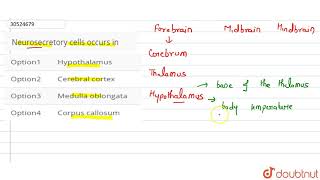 30524679
Neurosecretory cells occurs in
Option1 Hypothalamus
Option2 Cerebral cortex
Option3 Medulla oblongata
Option4 Corpus callosum
Forebrain Midbrain Hindbrain
Cerebrum
Thalamus
Hypothalamus → base of the thalamus
→ body temperature
doubtnut